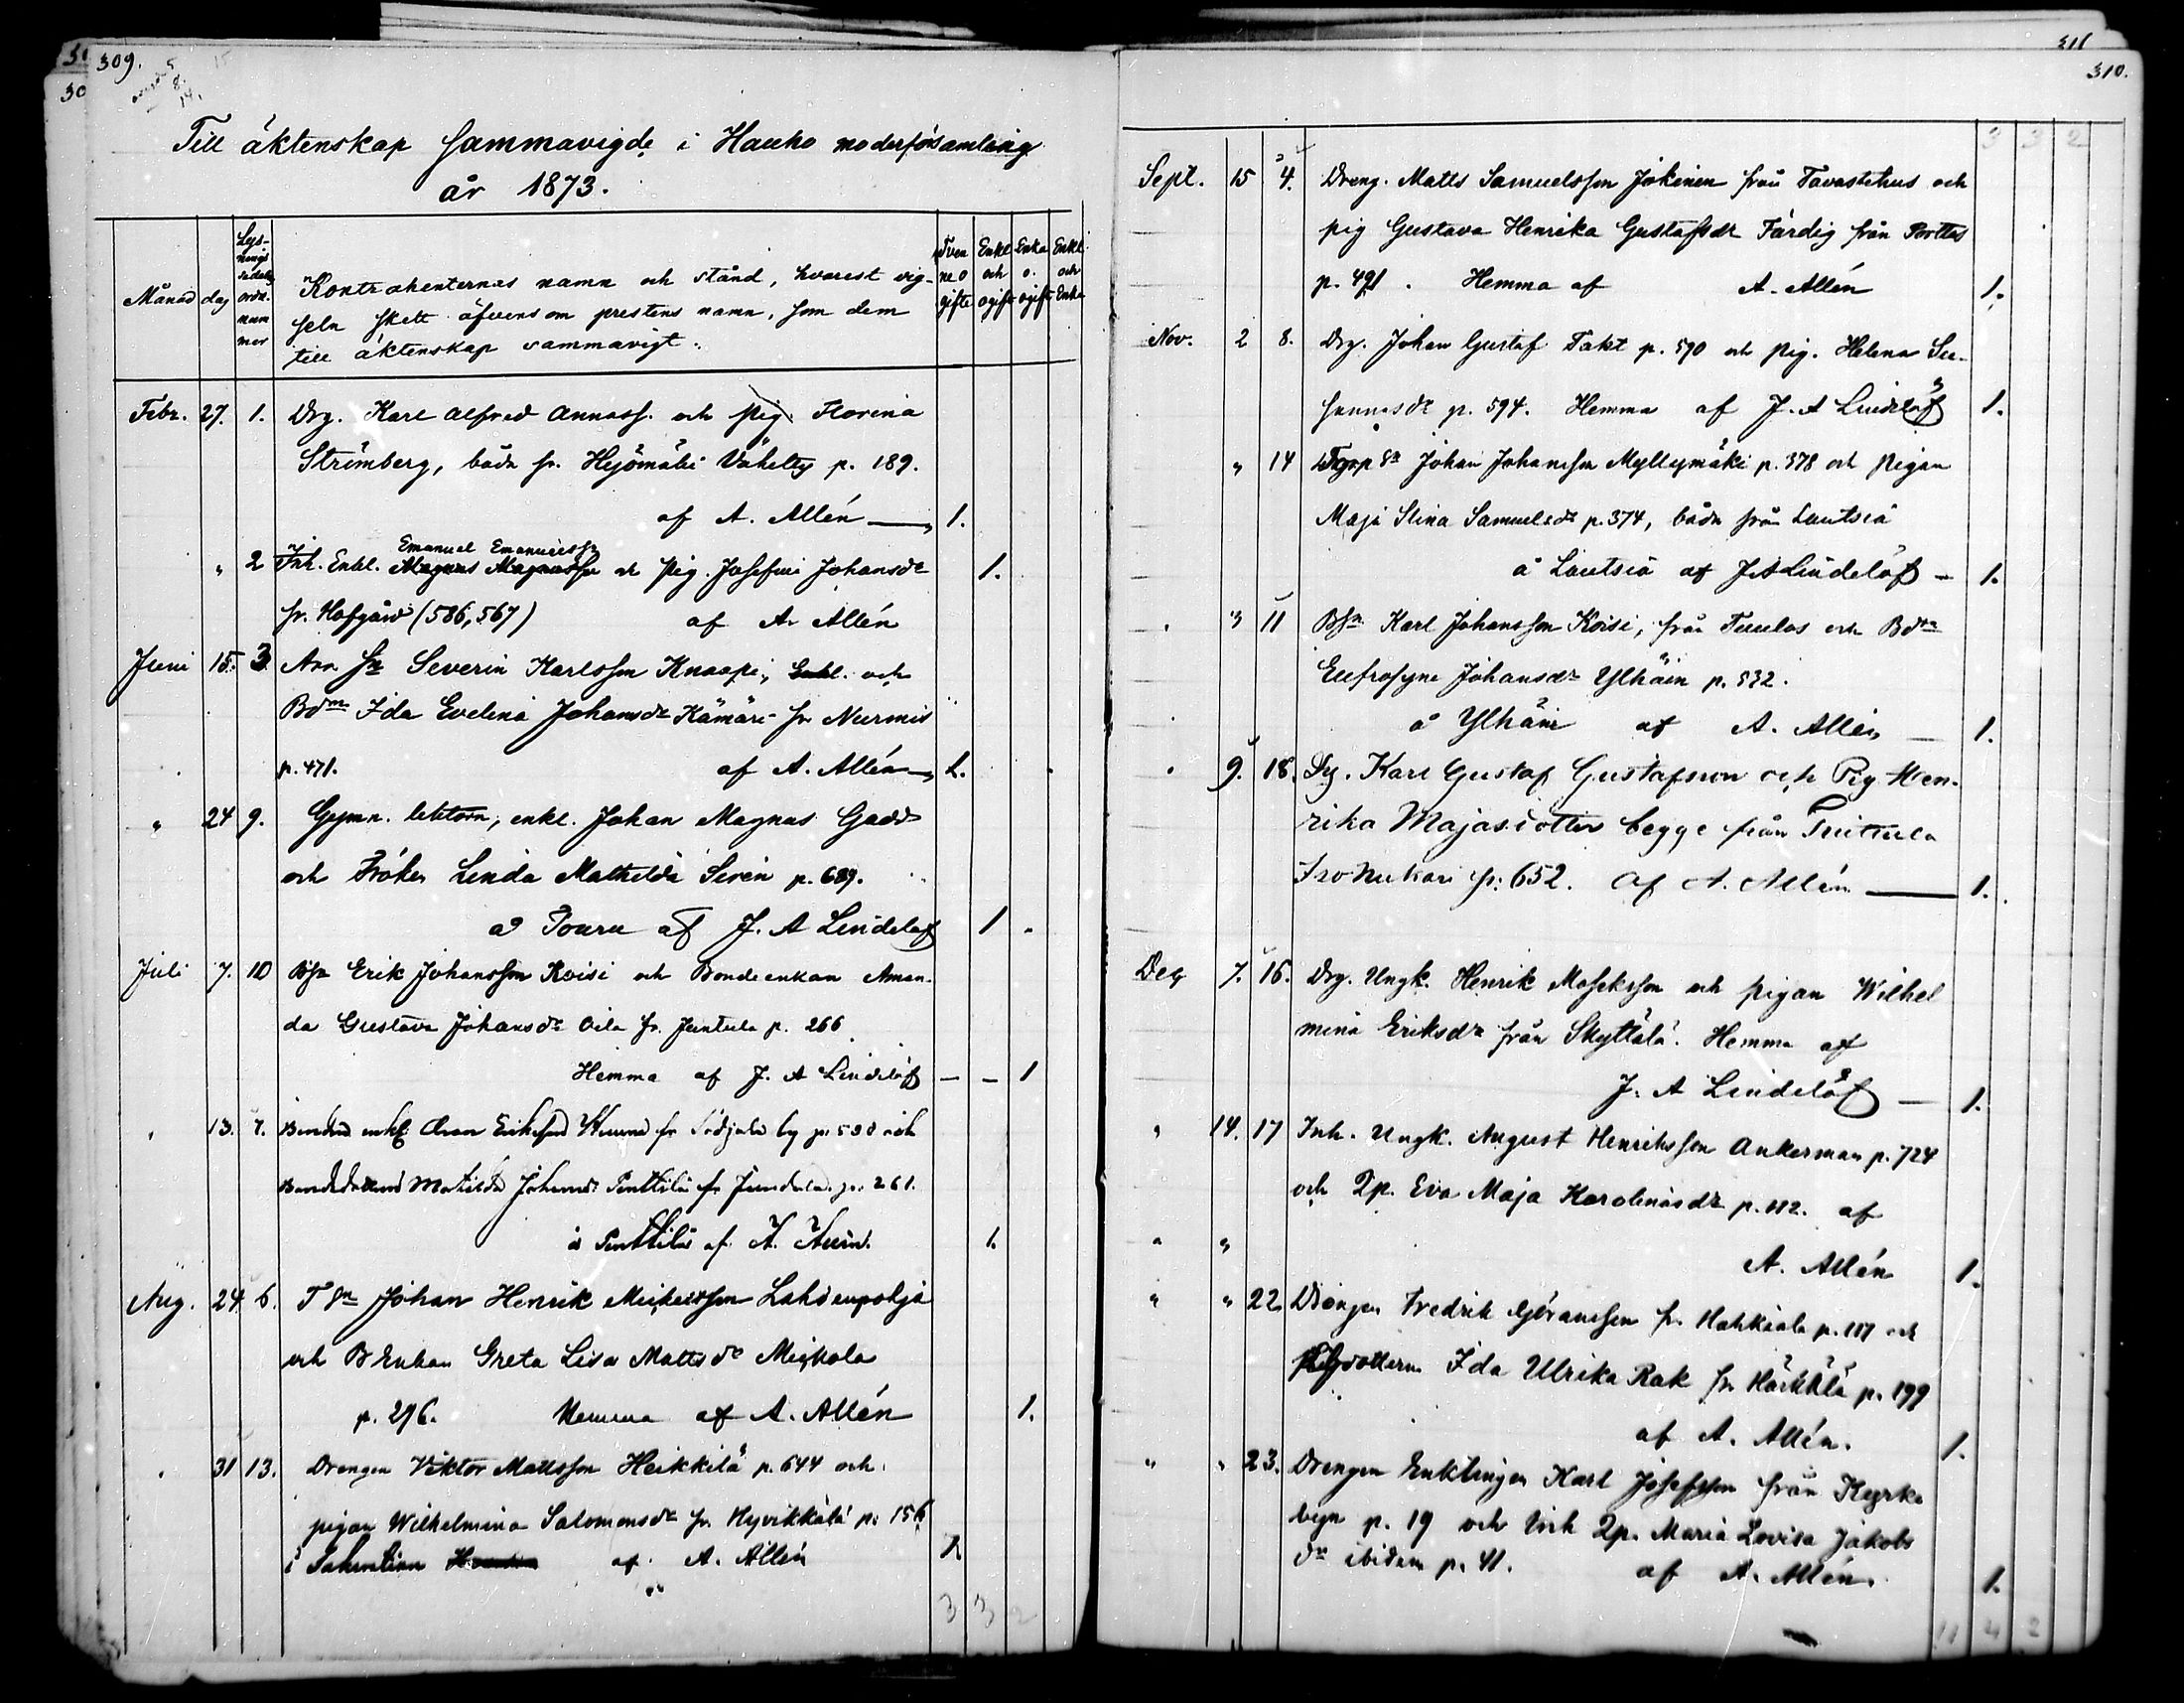 309.
Till äktenskap sammavigde i Hauho moderförsamling
år 1873.
Månad dag Lys-nings sedelns ordn. num mer
Kontrahenternas namn och stånd, hvarest vig-
seln skett äfvensom prestens namn, som dem
till äktenskap sammavigt.
Tven ne ogifte Enkl och ogift Enka o. ogift Enkl och Enka
Febr. 27. 1. Drg. Karl Alfred Annass. och pig. Florina
Strömberg, båda fr. Hyömäki Vähelty p. 189.
af A. Allén 1.
" 2 Inh. Enkl. Emanuel Emanuelss. och pig. Josefina Johansdr 1.
fr. Hofgård (586, 567) af A. Allén
Juni 15. 3. Sn Severin Karlsson Knaapi, och
Bdn Ida Evelina Johansdr Kämäri fr Nurmis
p. 471. af A. Allén 1.
" 24 9. Gymn. lektorn, enkl. Johan Magnus Gadd
och Fröken Linda Mathilda Sirén p. 689.
å Touru af J. A Lindelöf 1
Juli 7. 10 Bsn Erik Johansson Koisi och Bondeenkan Aman-
da Gustava Johansdr Oila fr. Juntula p. 266
Hemma af J. A Lindelöf — — 1
" 13. 7. Bonden enkl. Eriksson fr by p. 528 och
Matilda Johansdr Penttilä fr p. 261.
å Penttilä af A. 1.
Aug. 24 6. T Sn Johan Henrik Lahdenpohja
och B Enkan Greta Lisa Mattsdr Meskola
p. 296. Hemma af A. Allén 1.
" 31 13. Drengen Viktor Mattsson Heikkilä p. 644 och
pigan Wilhelmina Salomonsdr fr. Hyvikkälä p. 156
i af A. Allén 1.
3 3 2
311
310.
3 3 2
Sept. 15 4. Dreng. Matts Samuelsson Jokinen från Tavastehus och
pig Gustava Henrika Gustafsdr Färdig från Portas
p. 491. Hemma af A. Allén 1.
Nov. 2 8. Drg. Johan Gustaf Takt p. 590 och pig. Helena Su-
sannasdr p. 594. Hemma af J. A Lindelöf 1.
" 14 Torp Sn Johan Johansson Myllymäki p. 378 och pigan
Maja Stina Samuelsdr p. 374, båda från Lautsia
å Lautsia af J A Lindelöf 1.
" 11 Bsn Karl Johansson Koisi, från Tuulos och Bdn
Eufrosyne Johansdr Ylhäin p. 532.
å Ylhäin af A. Allén 1.
" 9. 18. Dg. Karl Gustaf Gustafsson och Pig Hen-
rika Majasdotter begge från Tuittula
Iso Nukari p: 652. af A. Allén 1.
Dec 7. 16. Drg. Ungk. Henrik och pigan Wilhel
mina Eriksdr från Skyttälä. Hemma af
J. A Lindelöf 1.
" 14. 17 Inh. Ungk. August Henriksson Ankerman p. 724
och Qp. Eva Maja Karolinasdr p. 112. af
" "
A. Allén 1.
" " 22 Drengen Fredrik Göransson fr. Hahkiala p. 117 och
Ida Ulrika Rak fr. Härkälä p. 199
af A. Allén. 1.
" " 23. Drengen Enklingen Karl Josefsson från Kyrko
byn p. 19 och Inh Qp. Maria Lovisa Jakobs
dr ibidem p. 41. af A. Allén. 1.
11 4 2